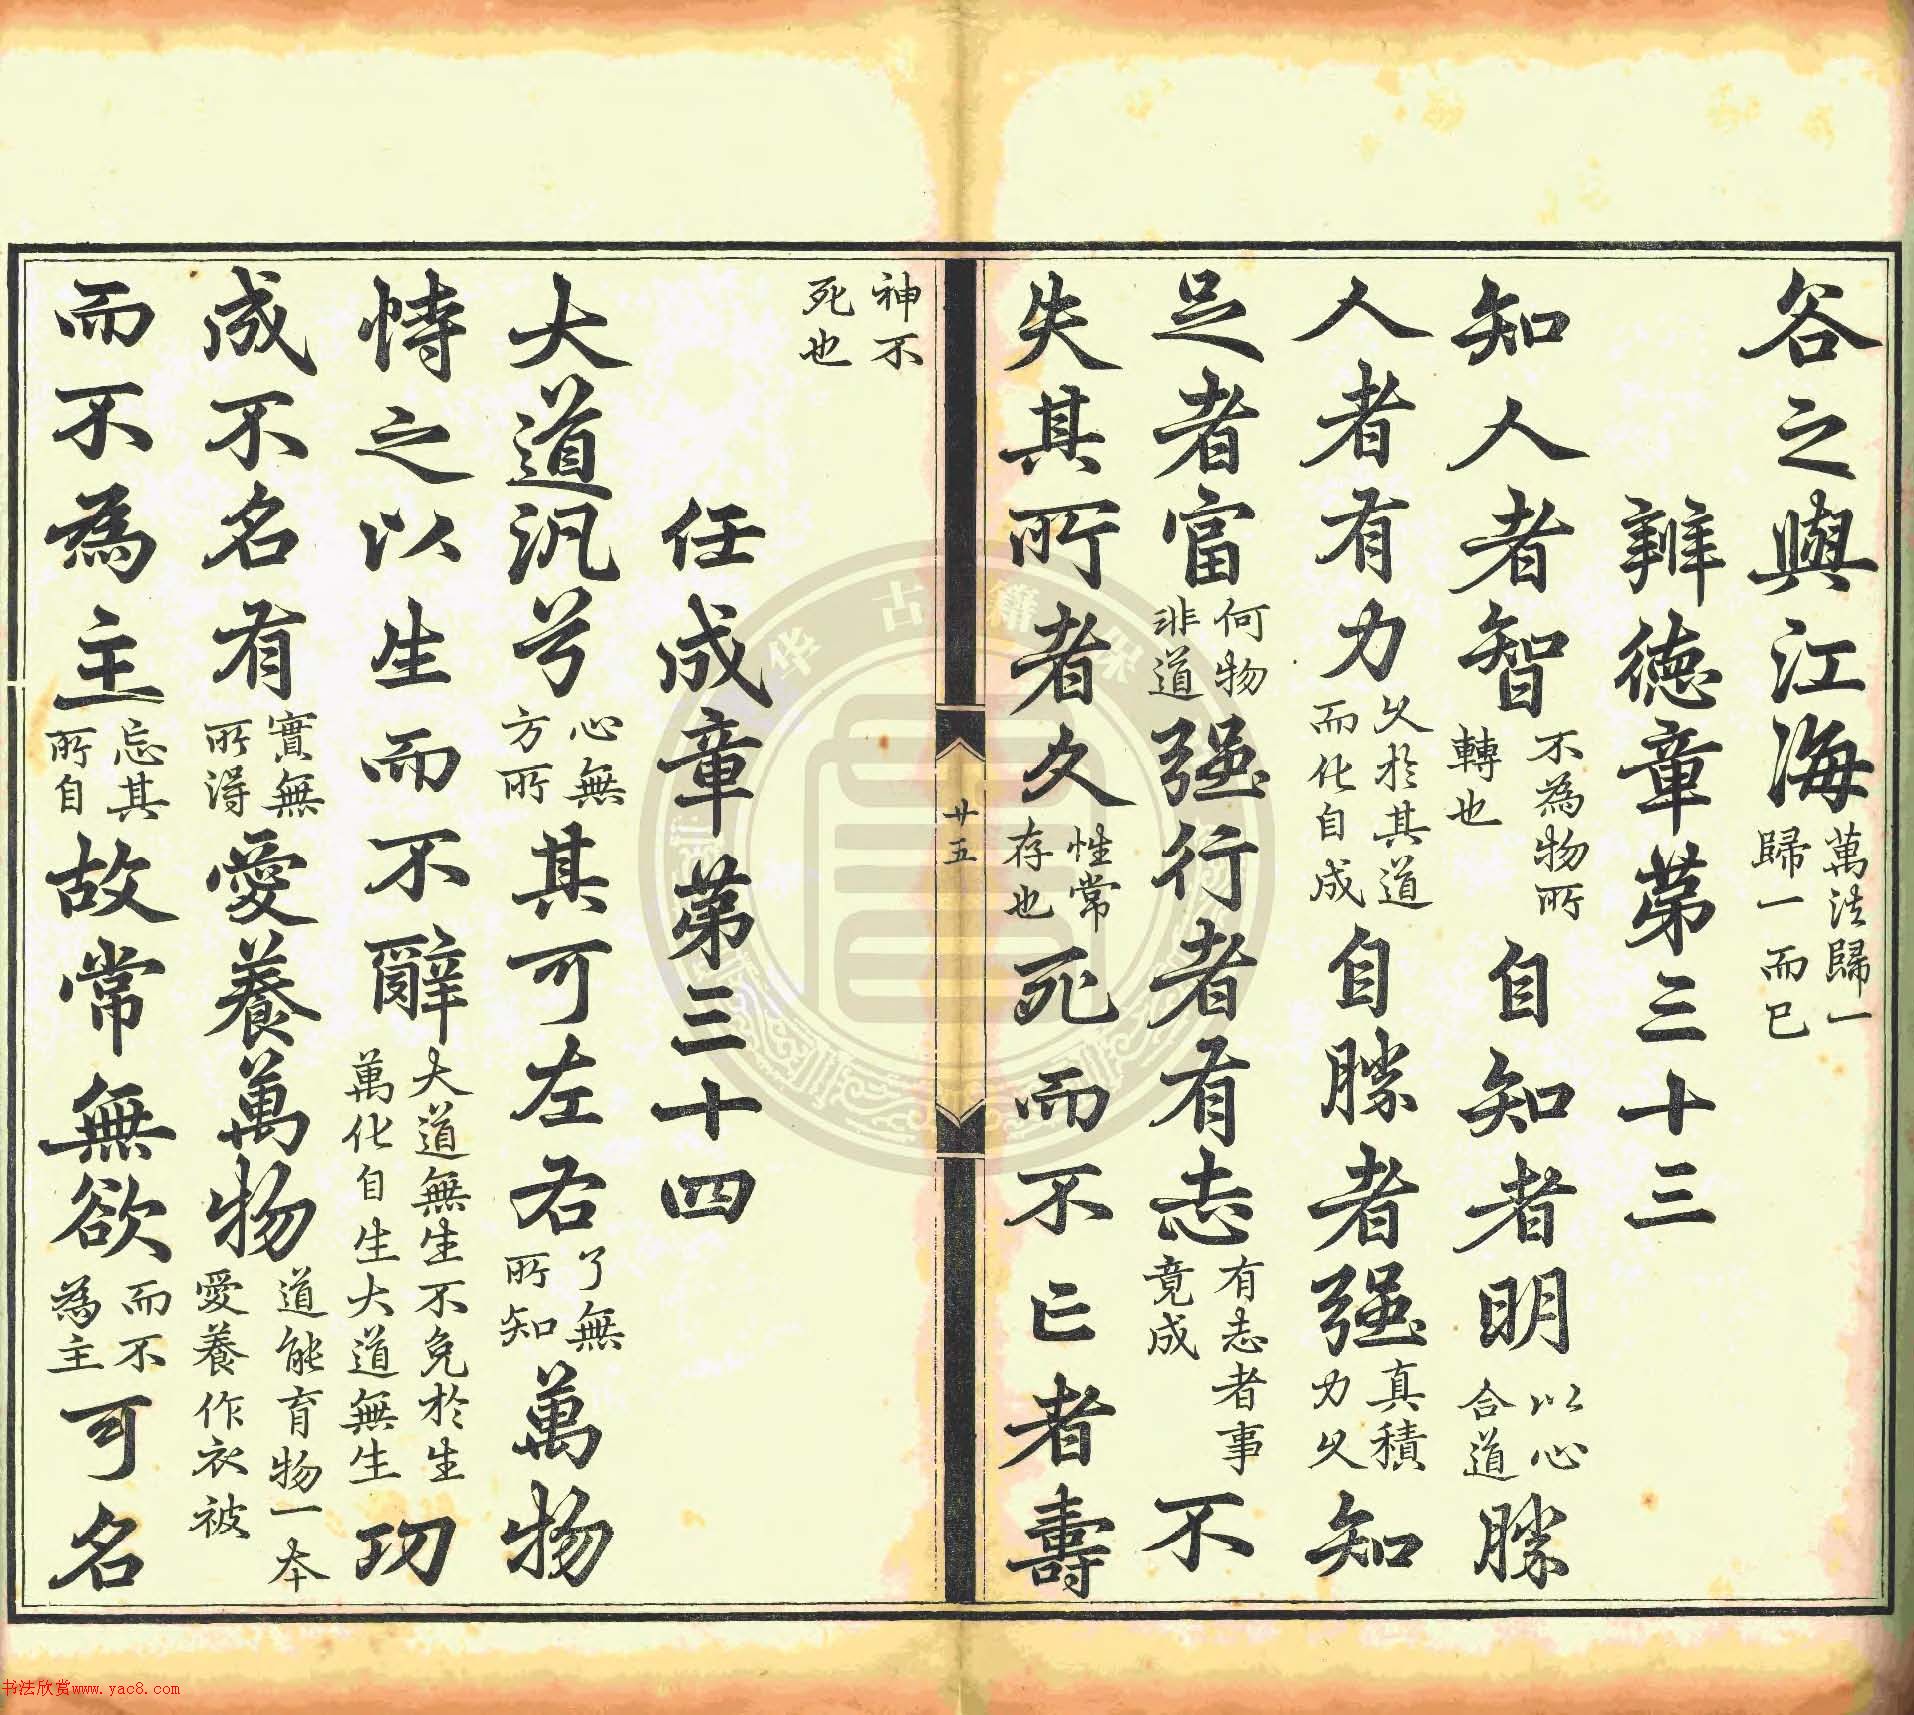 谷之與江海萬法歸一歸一而已
辨德章第三十三
知人者智不為物所轉也自知者明以心合道勝
人者有力久於其道而化自成自勝者强真積力久知
足者富何物非道强行者有志有志者事竟成不
失其所者久性常存也死而不亡者壽
廿五
神不死也
任成章第三十四
大道汎兮心無方所其可左右了無所知萬物
恃之以生而不辭大道無生不免於生萬化自生大道無生功
成不名有實無所得愛養萬物道能育物一本愛養作衣被
而不為主忘其所自故常無欲而不為主可名
书法欣赏www.yac8.com